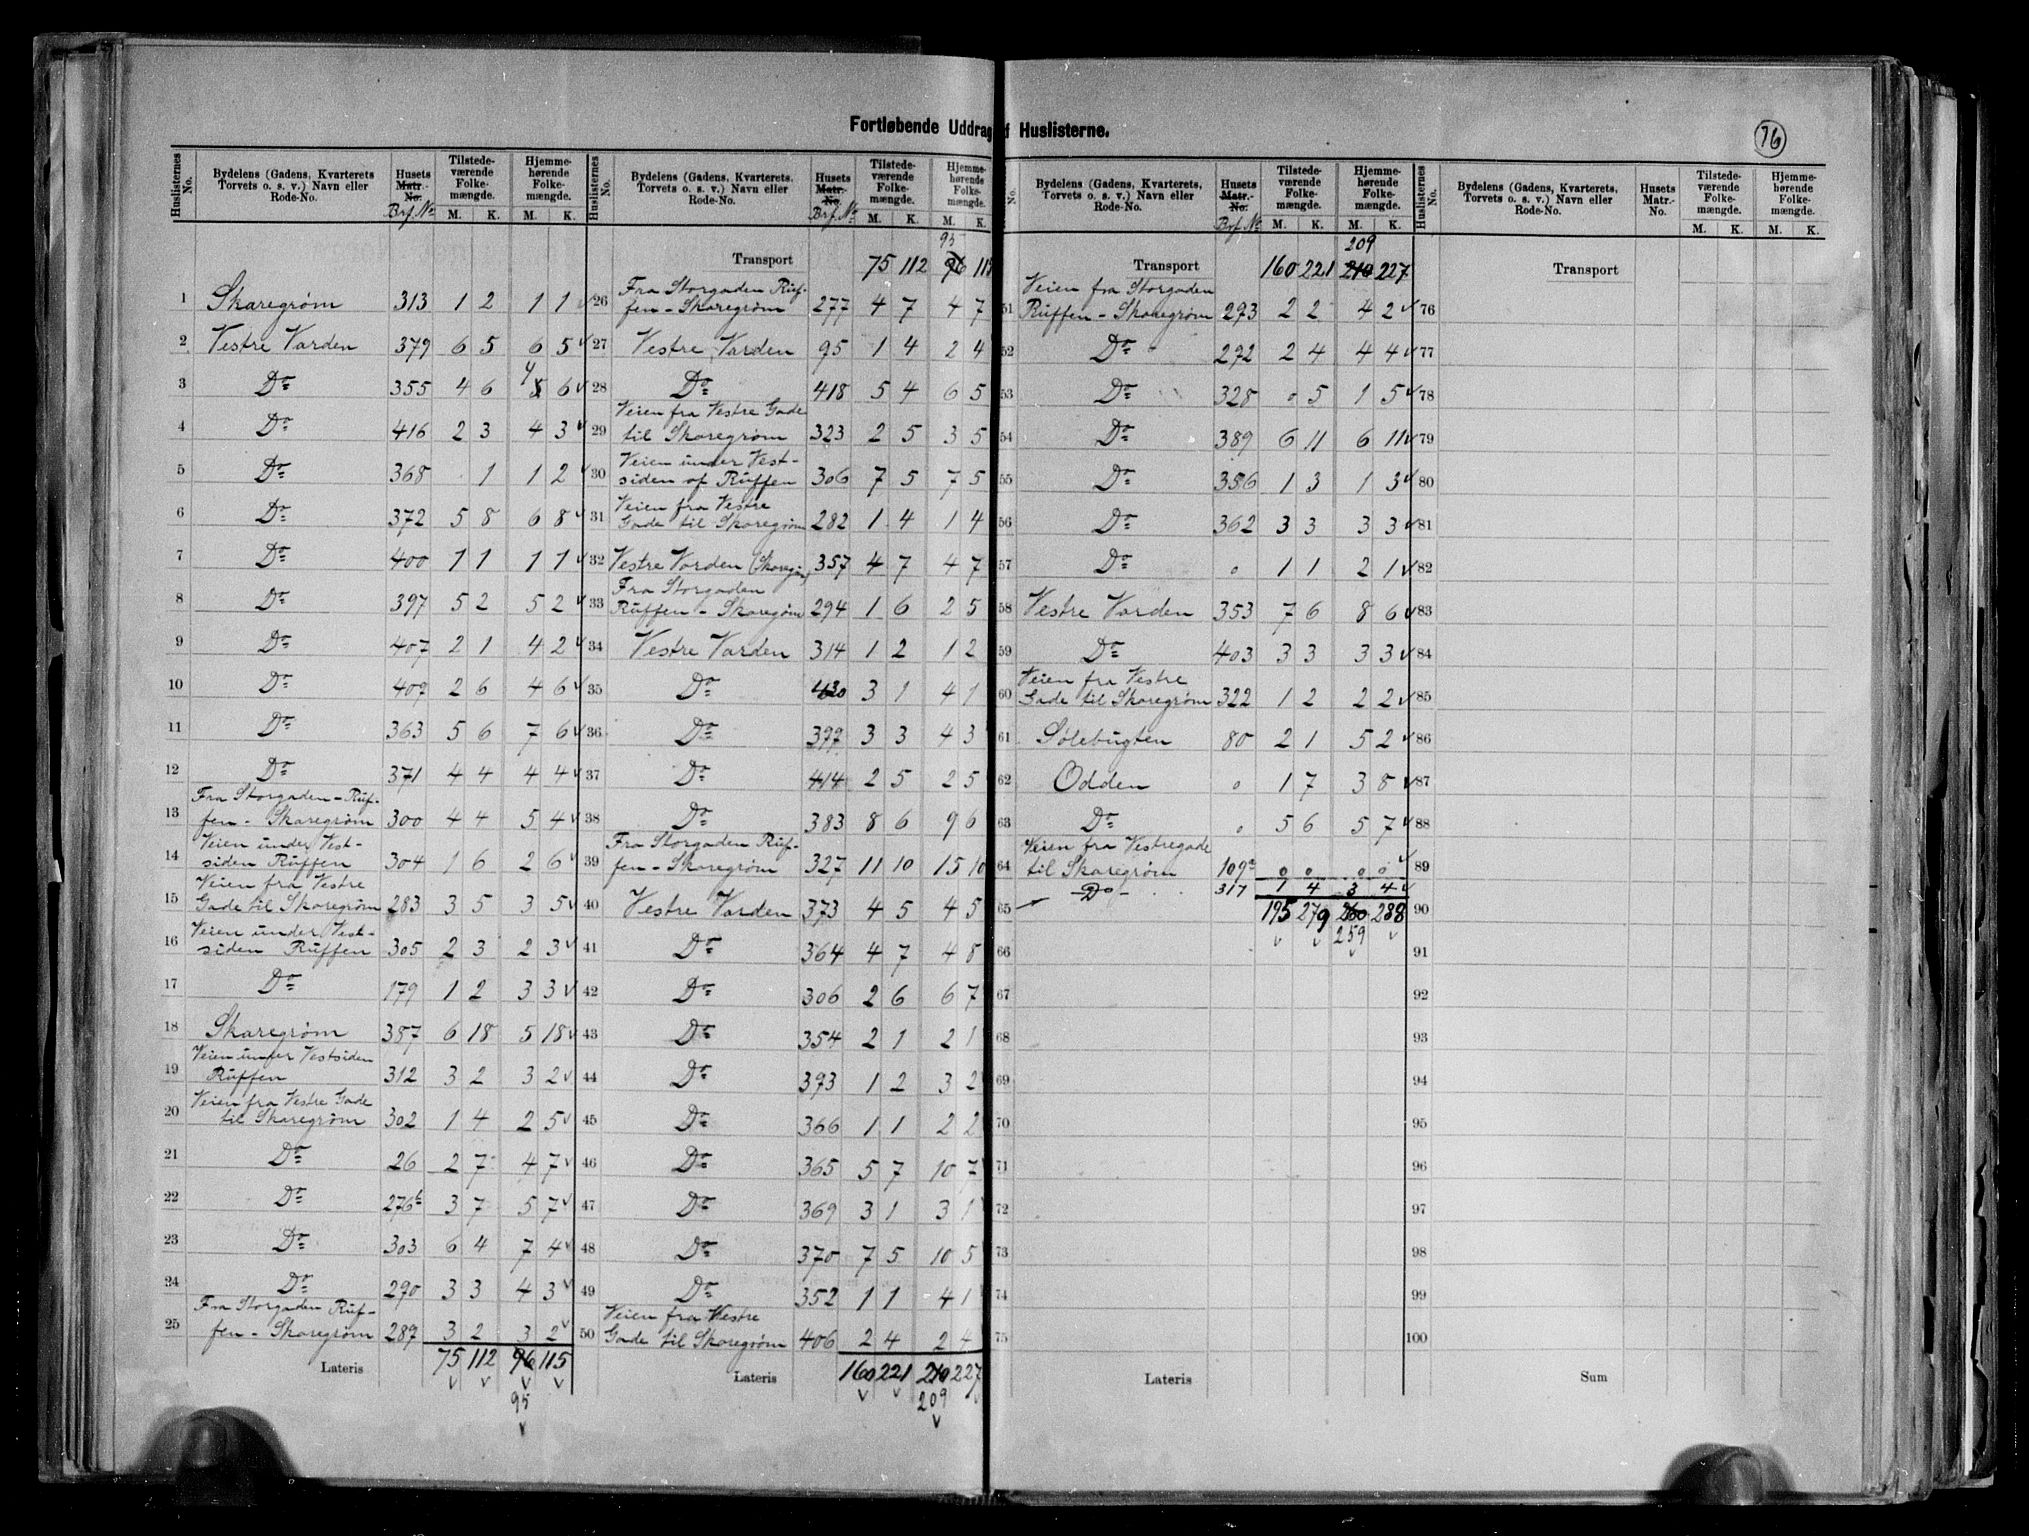 Fortløbende Uddrag af Huslisterne.
16
Huslisternes No.
Bydelens (Gadens, Kvarterets Torvets o. s. v.) Navn eller Rode-No.
Husets Matr.-No. Brf. No
Tilstedeværende Folkemængde. M. K.
Hjemmehørende Folkemængde. M. K.
1 Skaregrøm 313 1 2 1 1
2 Vestre Varden 379 6 5 6 5
3 Do 355 4 6 4 6
4 Do 416 2 3 4 3
5 Do 368 1 1 2
6 Do 372 5 8 6 8
7 Do 400 1 1 1 1
8 Do 397 5 2 5 2
9 Do 407 2 1 4 2
10 Do 409 2 6 4 6
11 Do 363 5 6 7 6
12 Do 371 4 4 4 4
13 Fra Storgaden - Ruf-
fen - Skaregrøm 300 4 4 5 4
14 Veien under Vest-
siden Ruffen 304 1 6 2 6
15 Veien fra Vestre
Gade til Skaregrøm 283 3 5 3 5
16 Veien under Vest-
siden Ruffen 305 2 3 2 3
17 Do 179 1 2 3 3
18 Skaregrøm 387 6 18 5 18
19 Veien under Vestsiden
Ruffen 312 3 2 3 2
20 Veien fra Vestre Gade
til Skaregrøm 302 1 4 2 5
21 Do 26 2 7 4 7
22 Do 276b 3 7 5 7
23 Do 303 6 4 7 4
24 Do 290 3 3 4 3
25 Fra Storgaden Ruf-
fen - Skaregrøm 289 3 2 3 2
Lateris 75 112 96 115
95
Huslisternes No.
Bydelens (Gadens, Kvarterets, Torvets o. s. v.) Navn eller Rode-No.
Husets Matr.-No. Brf. No
Tilstedeværende Folkemængde. M. K.
Hjemmehørende Folkemængde. M. K.
95
Transport 75 112 96
26 Fra Storgaden Ruf-
fen - Skaregrøm 277 4 7 4 7
27 Vestre Varden 95 1 4 2 4
28 Do 418 5 4 6 5
29 Veien fra Vestre Gade
til Skaregrøm 323 2 5 3 5
30 Veien under Vest-
siden af Ruffen 306 7 5 7 5
31 Veien fra Vestre
Gade til Skaregrøm 282 1 4 1 4
32 Vestre Varden (Skaregrøm) 357 4 7 4 7
33 Fra Storgaden
Ruffen - Skaregrøm 294 1 6 2 5
34 Vestre Varden 314 1 2 1 2
35 Do 3 1 4 1
36 Do 399 3 3 4 3
37 Do 414 2 5 2 5
38 Do 383 8 6 9 6
39 Fra Storgaden Ruf-
fen - Skaregrøm 327 11 10 15 10
40 Vestre Varden 373 4 5 4 5
41 Do 364 4 7 4 8
42 Do 306 2 6 6 7
43 Do 354 2 1 2 1
44 Do 393 1 2 3 2
45 Do 366 1 1 2 2
46 Do 365 5 7 10 7
47 Do 369 3 1 3 1
48 Do 370 7 5 10 5
49 Do 352 1 1 4 1
50 Veien fra Vestre
Gade til Skaregrøm 406 2 4 2 4
Lateris 160 221 210 227
209
No.
Bydelens (Gadens, Kvarterets, Torvets o. s. v.) Navn eller Rode-No.
Husets Matr.-No. Brf. No
Tilstedeværende Folkemængde. M. K.
Hjemmehørende Folkemængde. M. K.
209
Transport 160 221 210 227
51 Veien fra Storgaden
Ruffen - Skaregrøm 293 2 2 4 2
52 Do 292 2 4 4 4
53 Do 328 0 5 1 5
54 Do 389 6 11 6 11
55 Do 356 1 3 1 3
56 Do 362 3 3 3 3
57 Do 0 1 1 2 1
58 Vestre Varden 353 7 6 8 6
59 Do 403 3 3 3 3
60 Veien fra Vestre
Gade til Skaregrøm 322 1 2 2 2
61 Sølebugten 80 2 1 5 2
62 Odden 0 1 7 3 8
63 Do 0 5 6 5 7
64 Veien fra Vestregade
til Skaregrøm 109a 0 0 0 0
65 Do 317 1 4 3 4
195 279 260 288
259
66
67
68
69
70
71
72
73
74
75
Lateris
Huslisternes No.
Bydelens (Gadens, Kvarterets, Torvets o. s. v.) Navn eller Rode-No.
Husets Matr.-No.
Tilstedeværende Folkemængde. M. K.
Hjemmehørende Folkemængde. M. K.
Transport
76
77
78
79
80
81
82
83
84
85
86
87
88
89
90
91
92
93
94
95
96
97
98
99
100
Sum